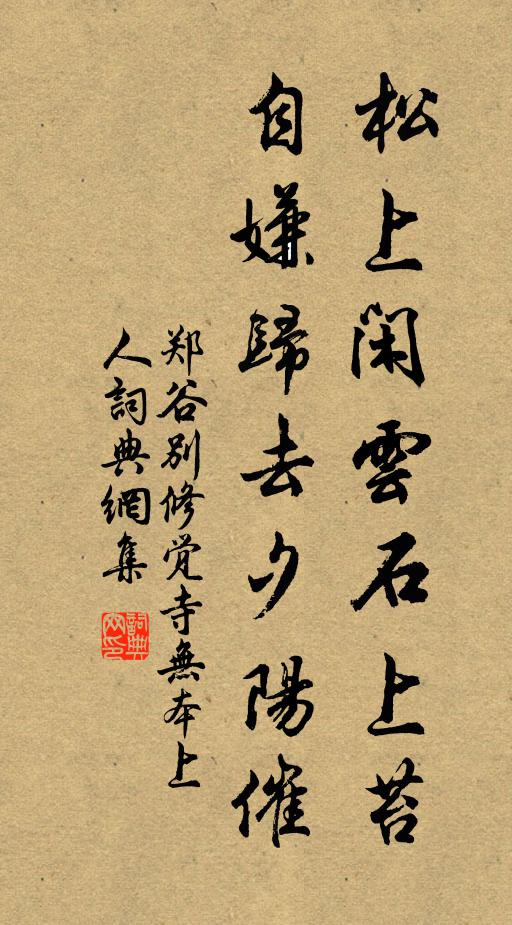 松上閑雲石上苔
自嫌歸去夕陽催
郑谷别修觉寺無本上
人詞典網集
詞典网印